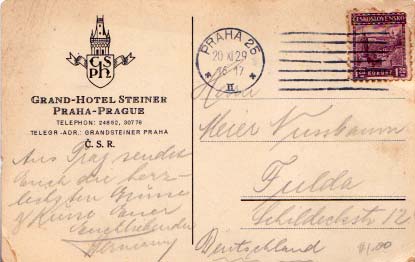 ČS
PH.
GRAND-HOTEL STEINER
PRAHA-PRAGUE
TELEPHON: 24862, 30776
TELEGR.-ADR.: GRANDSTEINER PRAHA
Č. S. R.
Aus Prag sendet
Euch die herz-
lichsten Grüsse
& Küsse Euer
Euchliebender
Hermann
PRAHA 25
20 XI 29
16-17
II
ČESKOSLOVENSKO
Herrn
Meier Nussbaum
Fulda
Schildeckstr 12
Deutschland
$1.00